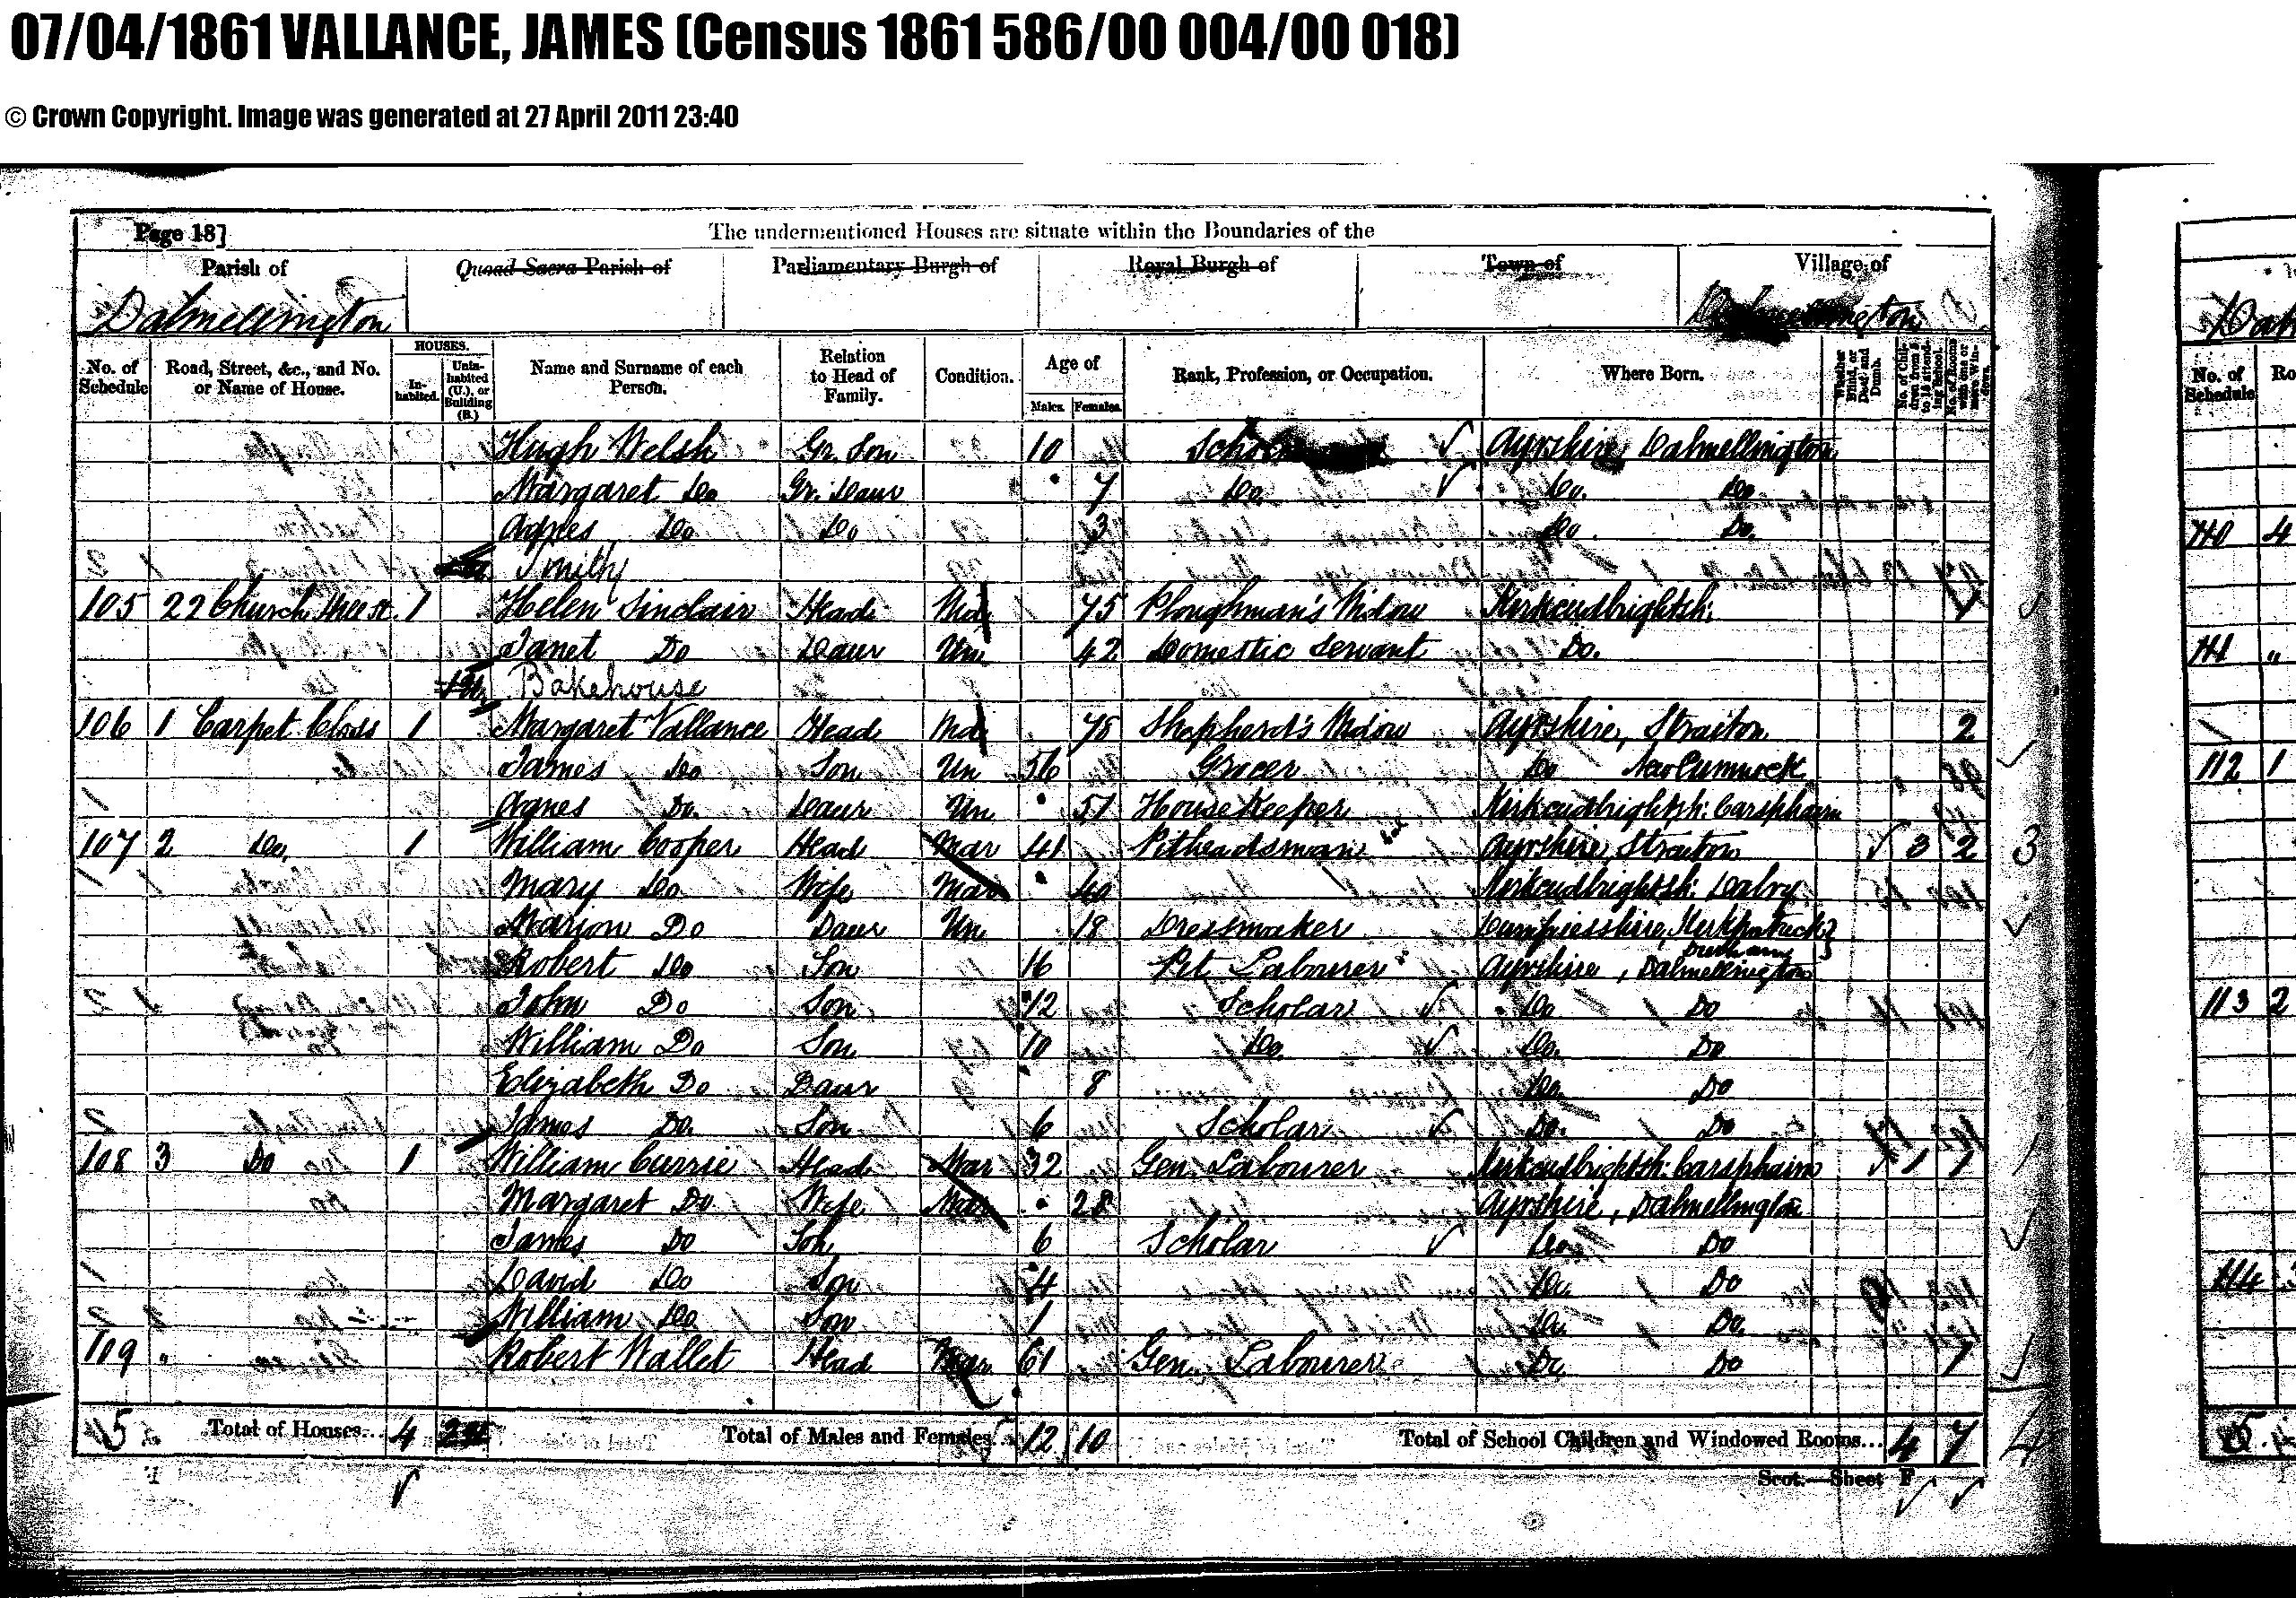 07/04/1861 VALLANCE, JAMES (Census 1861 586/00 004/00 018)
© Crown Copyright. Image was generated at 27 April 2011 23:40
Page 18] The undermentioned Houses are situate within the Boundaries of the
Parish of Quoad Sacra Parish of Parliamentary Burgh of Royal Burgh of Town of Village of
Dalmellington Dalmellington
No. of Schedule Road, Street, &c., and No. or Name of House. HOUSES. Inhabited. Uninhabited (U.), or Building (B.) Name and Surname of each Person. Relation to Head of Family. Condition. Age of Males. Females. Rank, Profession, or Occupation. Where Born. Whether Blind, or Deaf and Dumb. No. of Children from 5 to 15 attending School. No. of Rooms with one or more Windows.
Hugh Welsh Gr. Son 10 Scholar Ayrshire, Dalmellington
Margaret Do Gr. Daur 7 Do. Do. Do
Agnes Do Do 3 Do. Do.
Smithy
105 22 Church Street 1 Helen Sinclair Head Wid 75 Ploughman's Widow Kirkcudbrightsh: 1
Janet Do Daur Un 42 Domestic Servant Do.
Bakehouse
106 1 Carpet Close 1 Margaret Vallance Head Wid 78 Shepherd's Widow Ayrshire, Straiton 2
James Do Son Un 56 Grocer Do New Cumnock
Agnes Do. Daur Un 51 House Keeper Kirkcudbrightsh: Carsphairn
107 2 Do. 1 William Cooper Head Mar 41 Pitheadsman Ayrshire, Straiton 3 2 3
Mary Do Wife Mar 40 Kirkcudbrightsh: Dalry
Marion Do Daur Un 18 Dressmaker Dumfriesshire, Kirkpatrick Durham
Robert Do Son 16 Pit Labourer Ayrshire, Dalmellington
John Do Son 12 Scholar Do Do
William Do Son 10 Do. Do. Do
Elizabeth Do Daur 8 Do. Do
James Do. Son 6 Scholar Do. Do
108 3 Do 1 William Currie Head Mar 32 Gen. Labourer Kirkcudbrightsh: Carsphairn 1 1
Margaret Do Wife Mar 28 Ayrshire, Dalmellington
James Do Son 6 Scholar Do Do
David Do Son 4 Do. Do
William Do Son 1 Do. Do.
109 " Robert Wallet Head Mar 61 Gen. Labourer Do. Do 1
5 Total of Houses... 4 Total of Males and Females... 12 10 Total of School Children and Windowed Rooms... 4 7 4
Scot.—Sheet F
Dal
No. of Schedule Ro
110 4
111 "
112 1
113 2
114